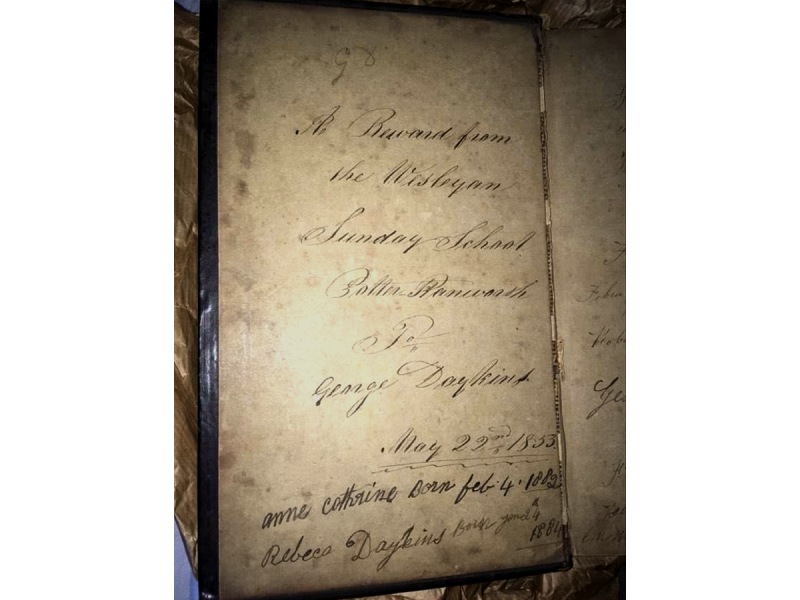 A Reward from
the Wesleyan
Sunday School
Potter Hanworth
To
George Daykins
May 22nd 1853
anne Cathrine Born feb 4. 1882
Rebeca Daykins Born 4
1884
Ge